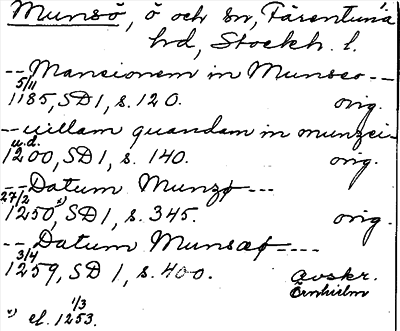 Munsö, ö och sn, Färentuna
hd, Stockh. l.
-- Mancionem in Munseo --
5/11
1185, SD 1, s. 120. orig.
-- uillam quandam in munzei
u.d.
1200, SD 1, s. 140. orig.
-- Datum Munzø ---
27/2 x)
1250, SD 1, s. 345. orig.
-- Datum Munsæø ----
3/4
1259, SD 1, s. 400. avskr.
Örnhielm
1/3
x) el. 1253.